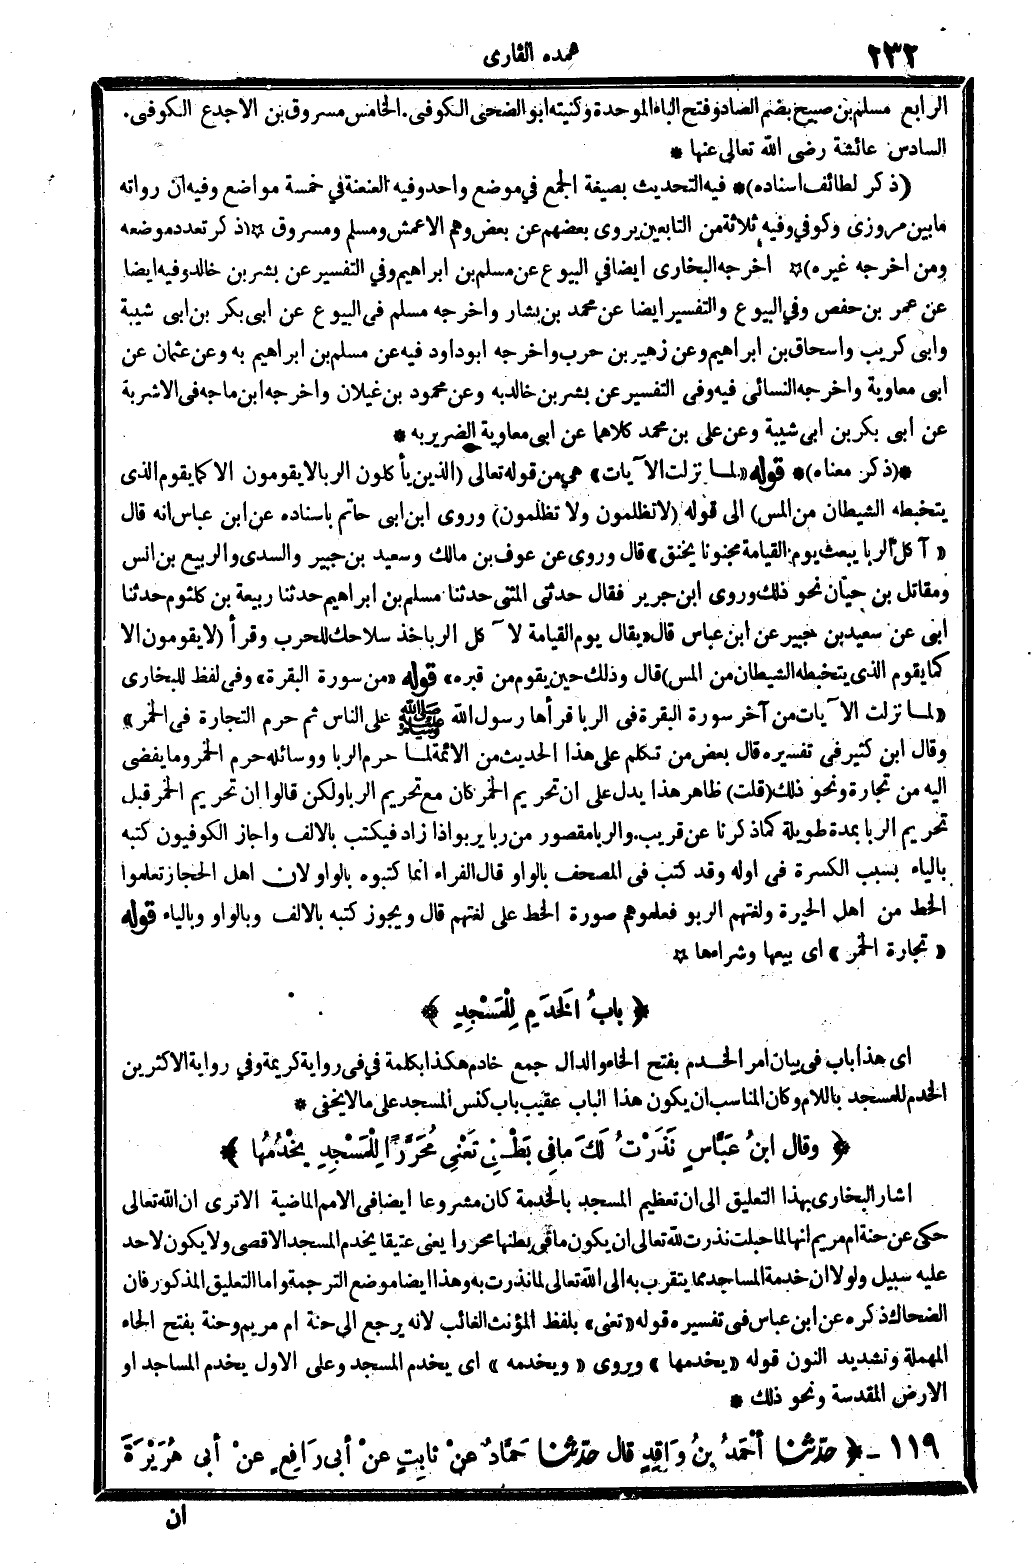 ٢٣٢
عمدة القارى
الرابع مسلم بن صبيح بضم الصاد وفتح الباء الموحدة وكنيته ابو الضحى الكوفى. الخامس مسروق بن الاجدع الكوفى.
السادس عائشة رضى الله تعالى عنها *
(ذكر لطائف اسناده)* فيه التحديث بصيغة الجمع في موضع واحد وفيه العنعنة في خمسة مواضع وفيه ان رواته
مابين مروزى وكوفي وفيه ثلاثة من التابعين يروى بعضهم عن بعض وهم الاعمش ومسلم ومسروق ☆(ذكر تعدد موضعه
ومن اخرجه غيره)☆ اخرجه البخارى ايضا في البيوع عن مسلم بن ابراهيم وفي التفسير عن بشر بن خالد وفيه ايضا
عن عمر بن حفص وفي البيوع والتفسير ايضا عن محمد بن بشار واخرجه مسلم فى البيوع عن ابى بكر بن ابى شيبة
وابى كريب واسحاق بن ابراهيم وعن زهير بن حرب واخرجه ابو داود فيه عن مسلم بن ابراهيم به وعن عثمان عن
ابى معاوية واخرجه النسائى فيه وفى التفسير عن بشر بن خالد به وعن محمود بن غيلان واخرجه ابن ماجه فى الاشربة
عن ابى بكر بن ابى شيبة وعن على بن محمد كلاهما عن ابى معاوية الضرير به *
*(ذكر معناه)* قوله «لما نزلت الآيات» هي من قوله تعالى (الذين يأكلون الربا لا يقومون الا كما يقوم الذى
يتخبطه الشيطان من المس) الى قوله (لا تظلمون ولا تظلمون) وروى ابن ابى حاتم باسناده عن ابن عباس انه قال
«آكل الربا يبعث يوم القيامة مجنونا يخنق» قال وروى عن عوف بن مالك وسعيد بن جبير والسدى والربيع بن انس
ومقاتل بن حيان نحو ذلك وروى ابن جرير فقال حدثنى المثنى حدثنا مسلم بن ابراهيم حدثنا ربيعة بن كلثوم حدثنا
ابى عن سعيد بن جبير عن ابن عباس قال «يقال يوم القيامة لآكل الربا خذ سلاحك للحرب وقرأ (لا يقومون الا
كما يقوم الذى يتخبطه الشيطان من المس) قال وذلك حين يقوم من قبره» قوله «من سورة البقرة» وفى لفظ للبخارى
«لما نزلت الآيات من آخر سورة البقرة فى الربا قرأها رسول الله ﷺ على الناس ثم حرم التجارة فى الخمر»
وقال ابن كثير فى تفسيره قال بعض من تكلم على هذا الحديث من الائمة لما حرم الربا ووسائله حرم الخمر وما يفضى
اليه من تجارة ونحو ذلك (قلت) ظاهر هذا يدل على ان تحريم الخمر كان مع تحريم الربا ولكن قالوا ان تحريم الخمر قبل
تحريم الربا بمدة طويلة كما ذكرنا عن قريب. والربا مقصور من ربا يربو اذا زاد فيكتب بالالف واجاز الكوفيون كتبه
بالياء بسبب الكسرة فى اوله وقد كتب فى المصحف بالواو قال الفراء انما كتبوه بالواو لان اهل الحجاز تعلموا
الخط من اهل الحيرة ولغتهم الربو فعلموهم صورة الخط على لغتهم قال ويجوز كتبه بالالف وبالواو وبالياء قوله
«تجارة الخمر» اى بيعها وشراءها ☆
﴿ بابُ الخَدَمِ لِلْمَسْجِدِ ﴾
اى هذا باب فى بيان امر الخدم بفتح الخاء والدال جمع خادم هكذا بكلمة في فى رواية كريمة وفي رواية الاكثرين
الخدم للمسجد باللام وكان المناسب ان يكون هذا الباب عقيب باب كنس المسجد على ما لا يخفى *
﴿ وقال ابنُ عَبَّاسٍ نَذَرْتُ لَكَ مافِى بَطْنِى تَعْنِى مُحَرَّرًا لِلْمَسْجِدِ يَخْدُمُهَا ﴾
اشار البخارى بهذا التعليق الى ان تعظيم المسجد بالخدمة كان مشروعا ايضا فى الامم الماضية الاترى ان الله تعالى
حكى عن حنة ام مريم انها لما حبلت نذرت لله تعالى ان يكون ما فى بطنها محررا يعنى عتيقا يخدم المسجد الاقصى ولا يكون لاحد
عليه سبيل ولولا ان خدمة المساجد مما يتقرب به الى الله تعالى لما نذرت به وهذا ايضا موضع الترجمة واما التعليق المذكور فان
الضحاك ذكره عن ابن عباس فى تفسيره قوله «تعنى» بلفظ المؤنث الغائب لانه يرجع الى حنة ام مريم وحنة بفتح الحاء
المهملة وتشديد النون قوله «يخدمها» ويروى «ويخدمه» اى يخدم المسجد وعلى الاول يخدم المساجد او
الارض المقدسة ونحو ذلك *
١١٩ - ﴿ حدّثنا أحْمَدُ بنُ وَاقِدٍ قال حدّثنا حَمَّادٌ عنْ ثابِتٍ عنْ أبى رَافِعٍ عنْ أبى هُرَيْرَةَ
ان